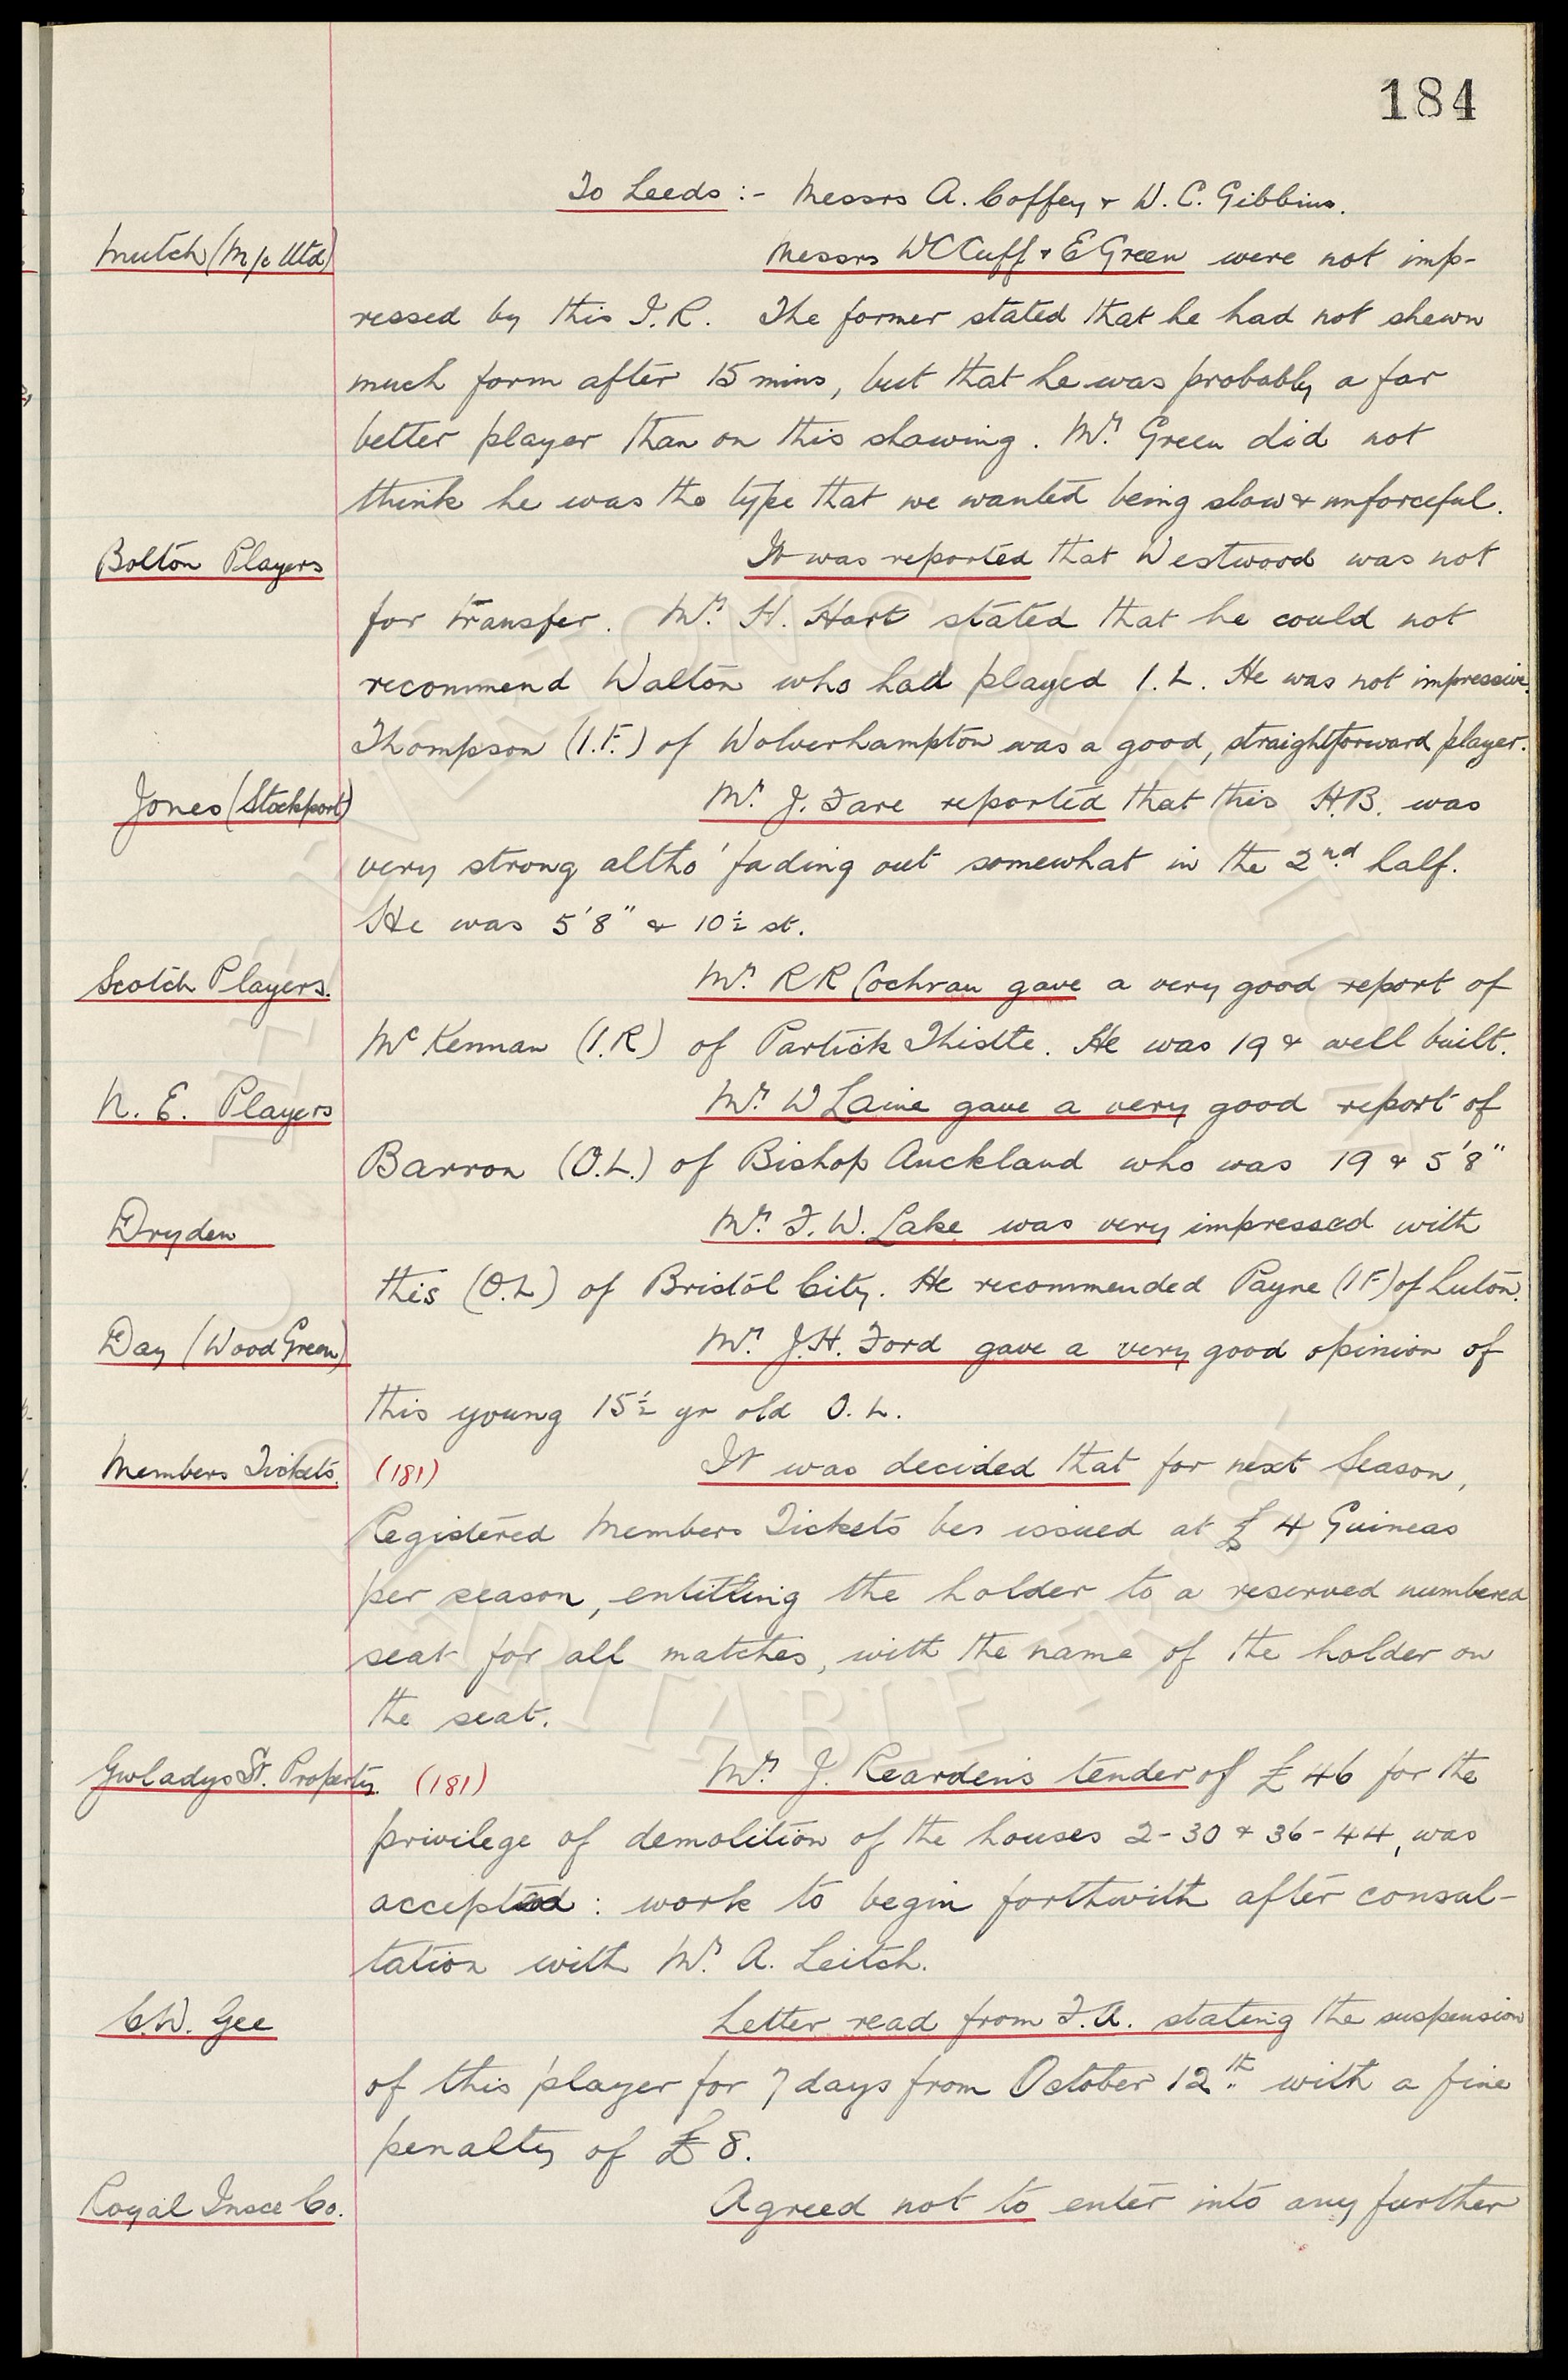 184
To Leeds :- Messrs A. Coffey & W. C. Gibbins.
Mutch (M/c Utd) Messrs W C Cuff & E Green were not imp-
ressed by this I.R. The former stated that he had not shewn
much form after 15 mins, but that he was probably a far
better player than on this showing. Mr. Green did not
think he was the type that we wanted being slow & unforceful.
Bolton Players It was reported that Westwood was not
for transfer. Mr. H. Hart stated that he could not
recommend Walton who had played I.L. He was not impressive.
Thompson (I.F.) of Wolverhampton was a good, straightforward player.
Jones (Stockport) Mr. J. Fare reported that this H.B. was
very strong altho' fading out somewhat in the 2nd half.
He was 5'8" & 10½ st.
Scotch Players. Mr. R R Cochran gave a very good report of
McKennan (I.R) of Partick Thistle. He was 19 & well built.
N. E. Players Mr. W Laine gave a very good report of
Barron (O.L.) of Bishop Auckland who was 19 & 5'8"
Dryden Mr. F. W. Lake was very impressed with
this (O.L) of Bristol City. He recommended Payne (I F) of Luton.
Day (Wood Green) Mr. J.H. Ford gave a very good opinion of
this young 15½ yr old O. L.
Members Tickets. (181) It was decided that for next Season,
Registered Members Tickets be issued at £ 4 Guineas
per season, entitling the holder to a reserved numbered
seat for all matches, with the name of the holder on
the seat.
Gwladys St. Property. (181) Mr. J. Rearden's tender of £46 for the
privilege of demolition of the houses 2-30 & 36-44, was
accepted : work to begin forthwith after consul-
tation with Mr. A. Leitch.
C.W. Gee Letter read from F.A. stating the suspension
of this player for 7 days from October 12th with a fine
penalty of £8.
Royal Insce Co. Agreed not to enter into any further